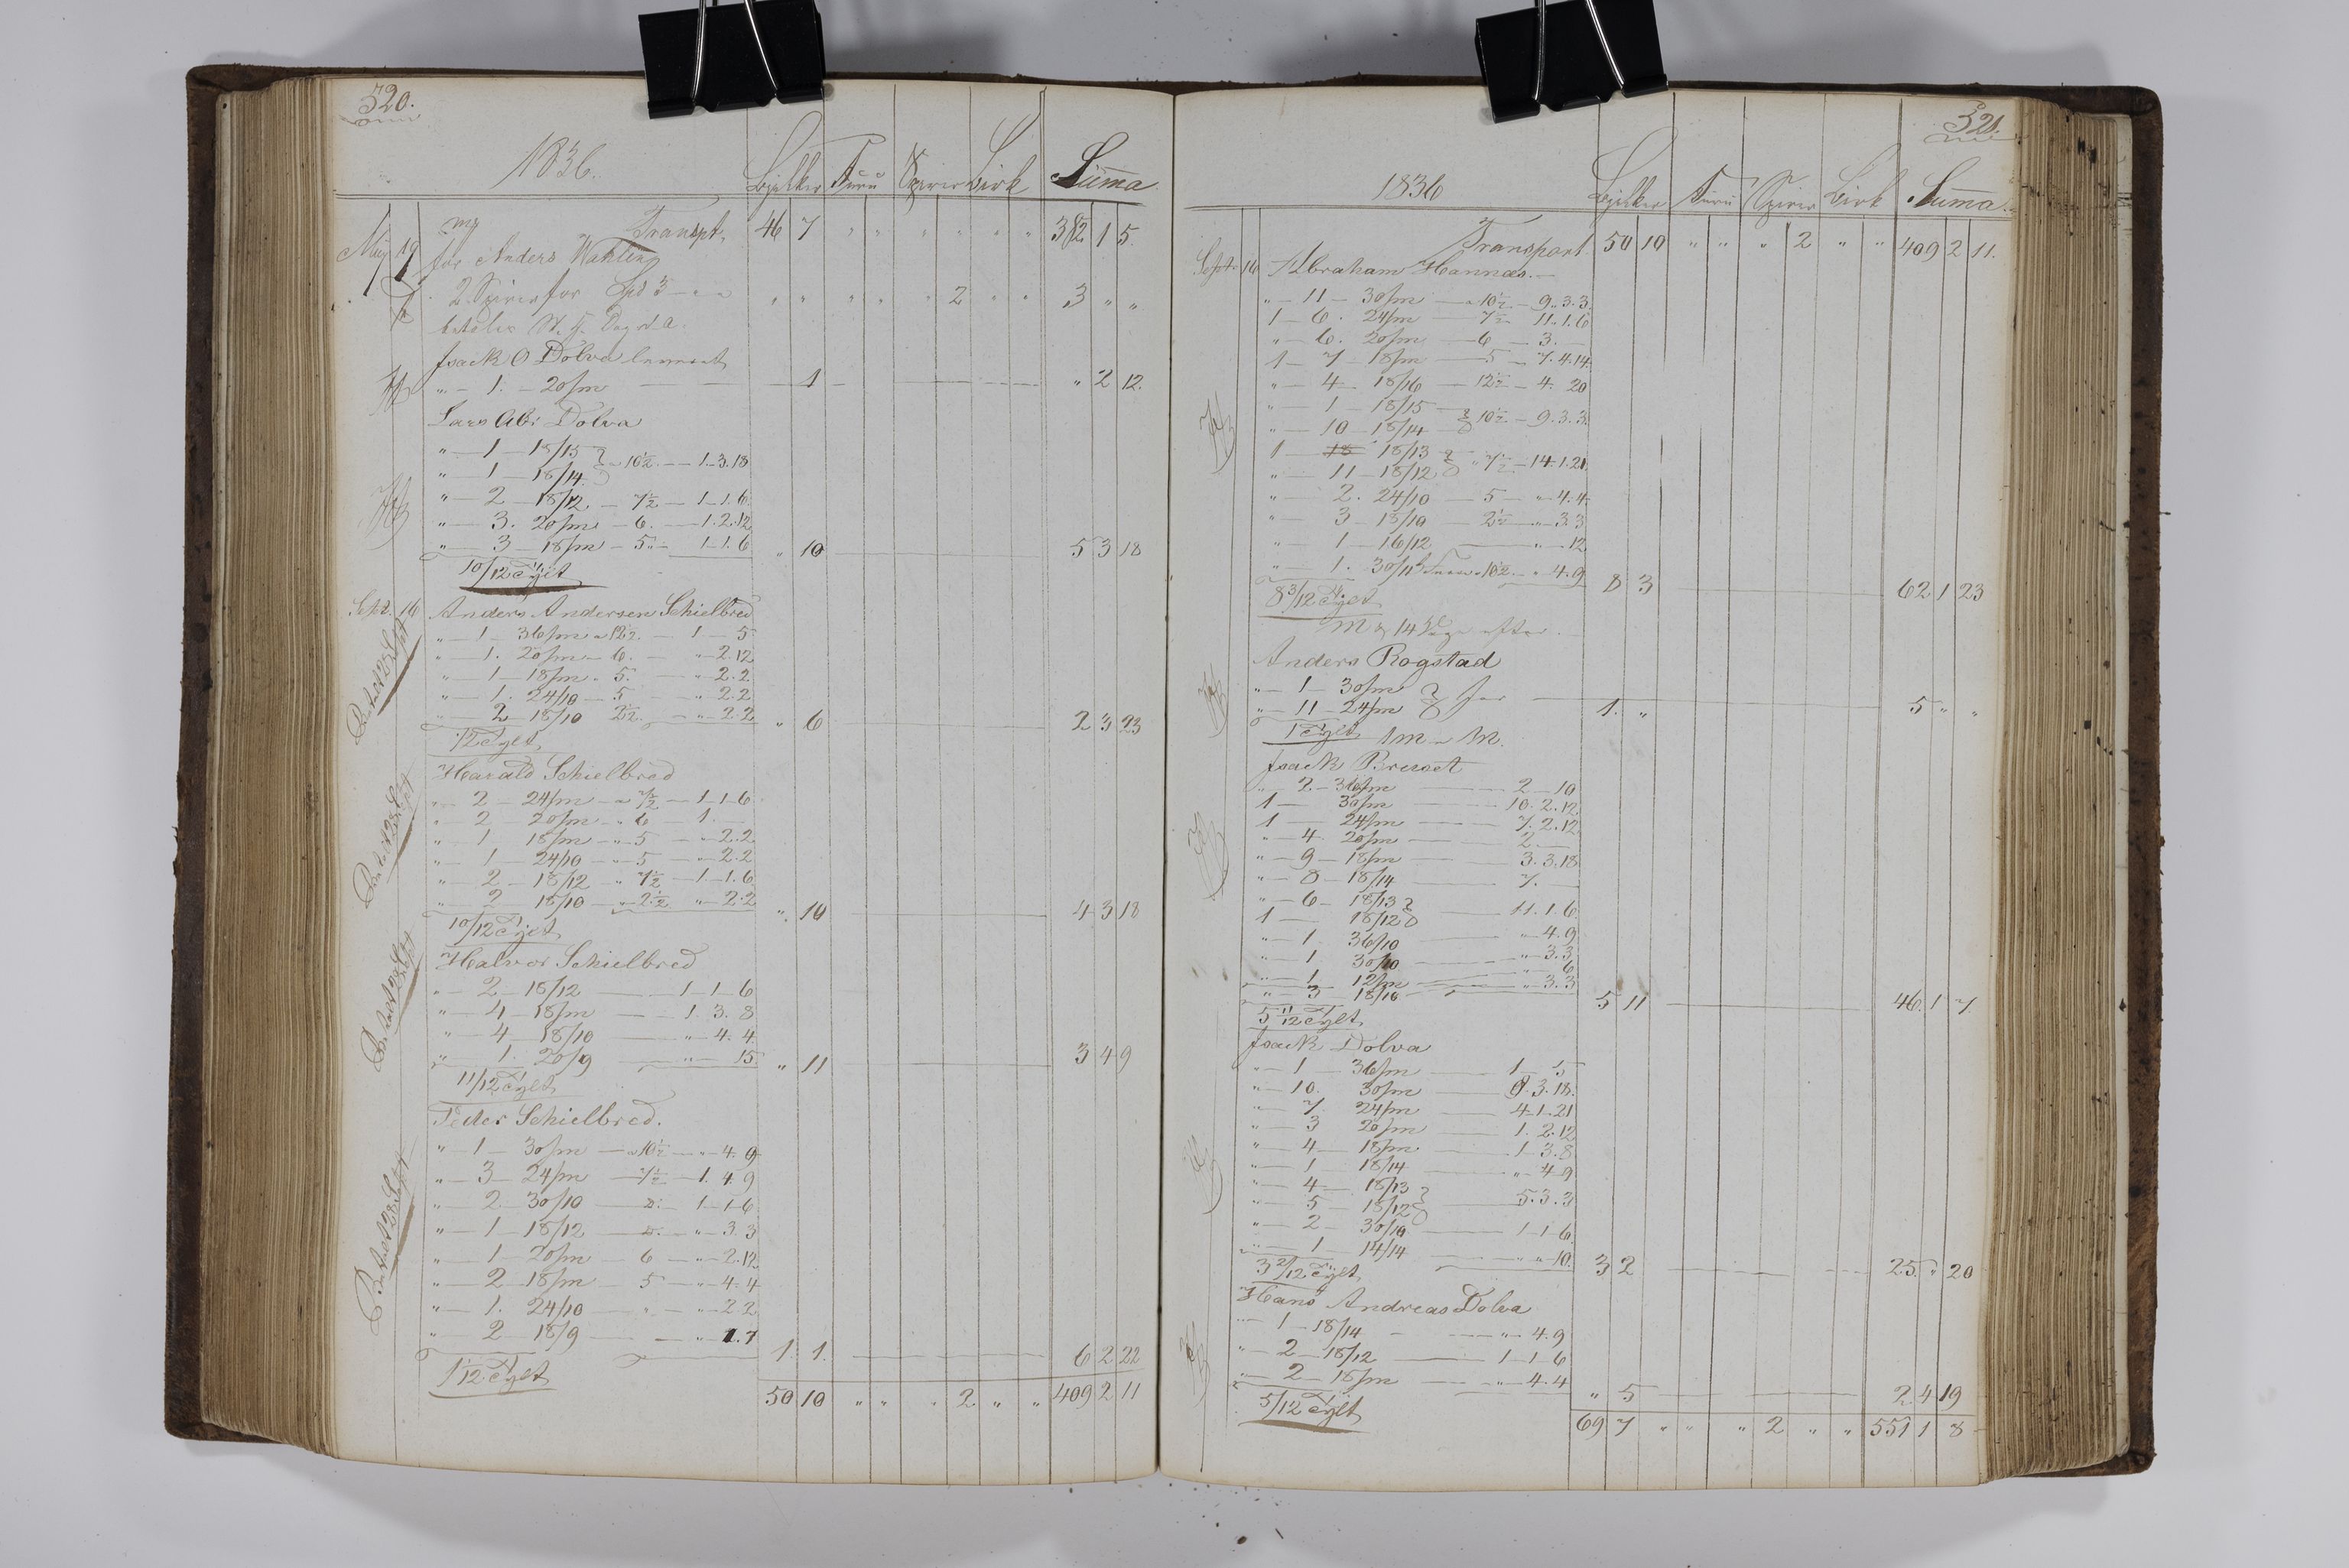 320.
1836. Bjelker Furu Spirer Birk Summa
Transpt. 46 7 " " " " " " 382 1 5.
May 19 for Anders Wahling
2 Spirer for Spd 3 " " " " " " 2 " " 3 " "
Isack O Dolva
" 1. 20/m 1 " 2 12.
Lars Abr Dolva
" 1 18/15
" 1 18/14 10½ 1.3.18
" 2 18/12 7½ 1.1.6
" 3. 20/m 6. 1.2.12
" 3 18/m 5 1.1.6 " 10 5 3 18
10/12 Tylt
Sept. 16 Anders Andersen Schielbred
" 1 36/m a 12½ 1 5
" 1. 20/m 6. " 2.12
" 1 18/m " 5. " 2.2
" 1. 24/10 5 " 2.2
" 2 18/10 2½ " 2.2 " 6 2 3 23
½ Tylt
Harald Schielbred
" 2 24/m a 7½ 1.1.6
" 2 20/m " 6 1.
" 1 18/m " 5 " 2.2
" 1 24/10 " 5 " 2.2
" 2 18/12 " 7½ 1.1.6
" 2 18/10 " 2½ " 2.2 " 10 4 3 18
10/12 Tylt
Halvor Schielbred
" 2 18/12 1 1 6
" 4 18/m 1 3. 8
" 4 18/10 " 4. 4
" 1. 20/9 " 15 " 11 3 4 9
11/12 Tylt
Peder Schielbred.
" 1 30/m a 10½ " 4. 9
" 3 24/m 7½ 1. 4. 9
" 2 30/10 1 1 6
" 1 18/12 " 3. 3
" 1 20/m 6 " 2.12
" 2 18/m 5 " 4. 4
" 1. 24/10 " " 2.2
" 2 18/9 1.7 1. 1. 6 2 22
1 1/12 Tylt
50 10 " " " 2 " " 409 2 11
Betalt 28 Sept
Betalt 28 Sept
Betalt 28 Sept
Betalt 28 Sept
321.
1836 Bjelker Furu Spirer Birk Summa
Transport 50 10 " " " 2 " " 409 2 11.
Sept. 16 Abraham Hannæs.
" 11 30/m a 10½ 9.3.3
1 6. 24/m 7½ 11.1.6
" 6. 20/m 6 3.
1 7 18/m 5 7.4.14
" 4 18/16 12½ 4. 20
" 1 18/15
" 10 18/14 10½ 9.3.3
1 18 18/13
" 11 18/12 " 7½ 14.1.21
" 2. 24/10 5 " 4.4
" 3 18/10 2½ " 3.3
" 1 16/12 " 12
" 1. 30/11 10½ " 4.9 8 3 62 1 23
8 3/12 Tylt
14 Dage efter.
Anders Rogstad
" 1 30/m
" 11 24/m for 1. " 5 " "
1 Tylt
Isack Breset
" 2 36/m 2 10
1 30/m 10. 2. 12
1 24/m 7. 2. 12
" 4. 20/m 2.
" 9 18/m 3. 3.18
" 8 18/14 7.
" 6 18/13
1 18/12 11. 1. 6
" 1 36/10 " 4.9
" 1 30/10 " 3.3
" 1 12/m " 6
" 3 18/10 " 3.3 5 11 46. 1 7.
5 11/12 Tylt
Isack Dolva
" 1 36/m 1 5
" 10. 30/m 8. 3.18.
" 7. 24/m 4 1.21
" 3 20/m 1. 2.12
" 4 18/m 1 3.8
" 1 18/14 " 4 9
" 4 18/13
" 5 18/12 5.3.3
" 2 30/10 1 1 6
" 1 14/14 " " 10. 3 2 25. " 20
3 2/12 Tylt
Hans Andreas Dolva
" 1 18/14 " 4.9
" 2 18/12 1 1 6
" 2 18/m " 4.4 " 5 2 4 19
5/12 Tylt
69 7 " " " 2 " " 551 1 8